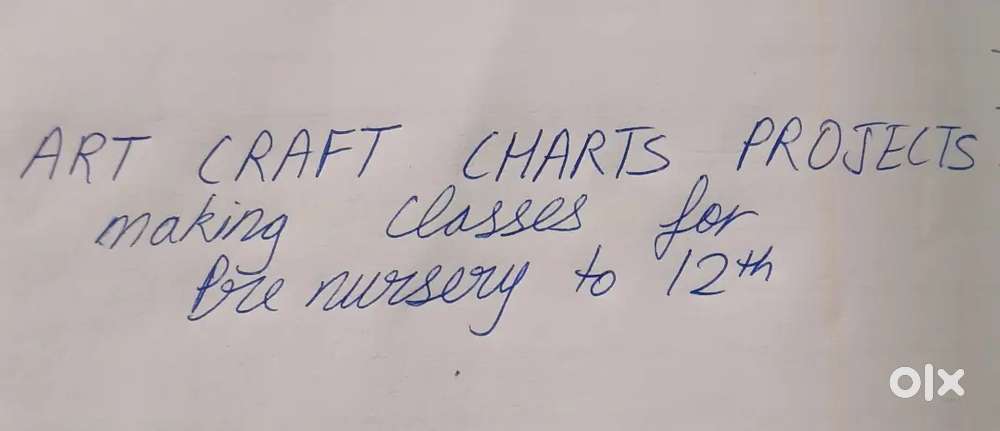 ART CRAFT CHARTS PROJECTS
making classes for
Pre nursery to 12th
olx